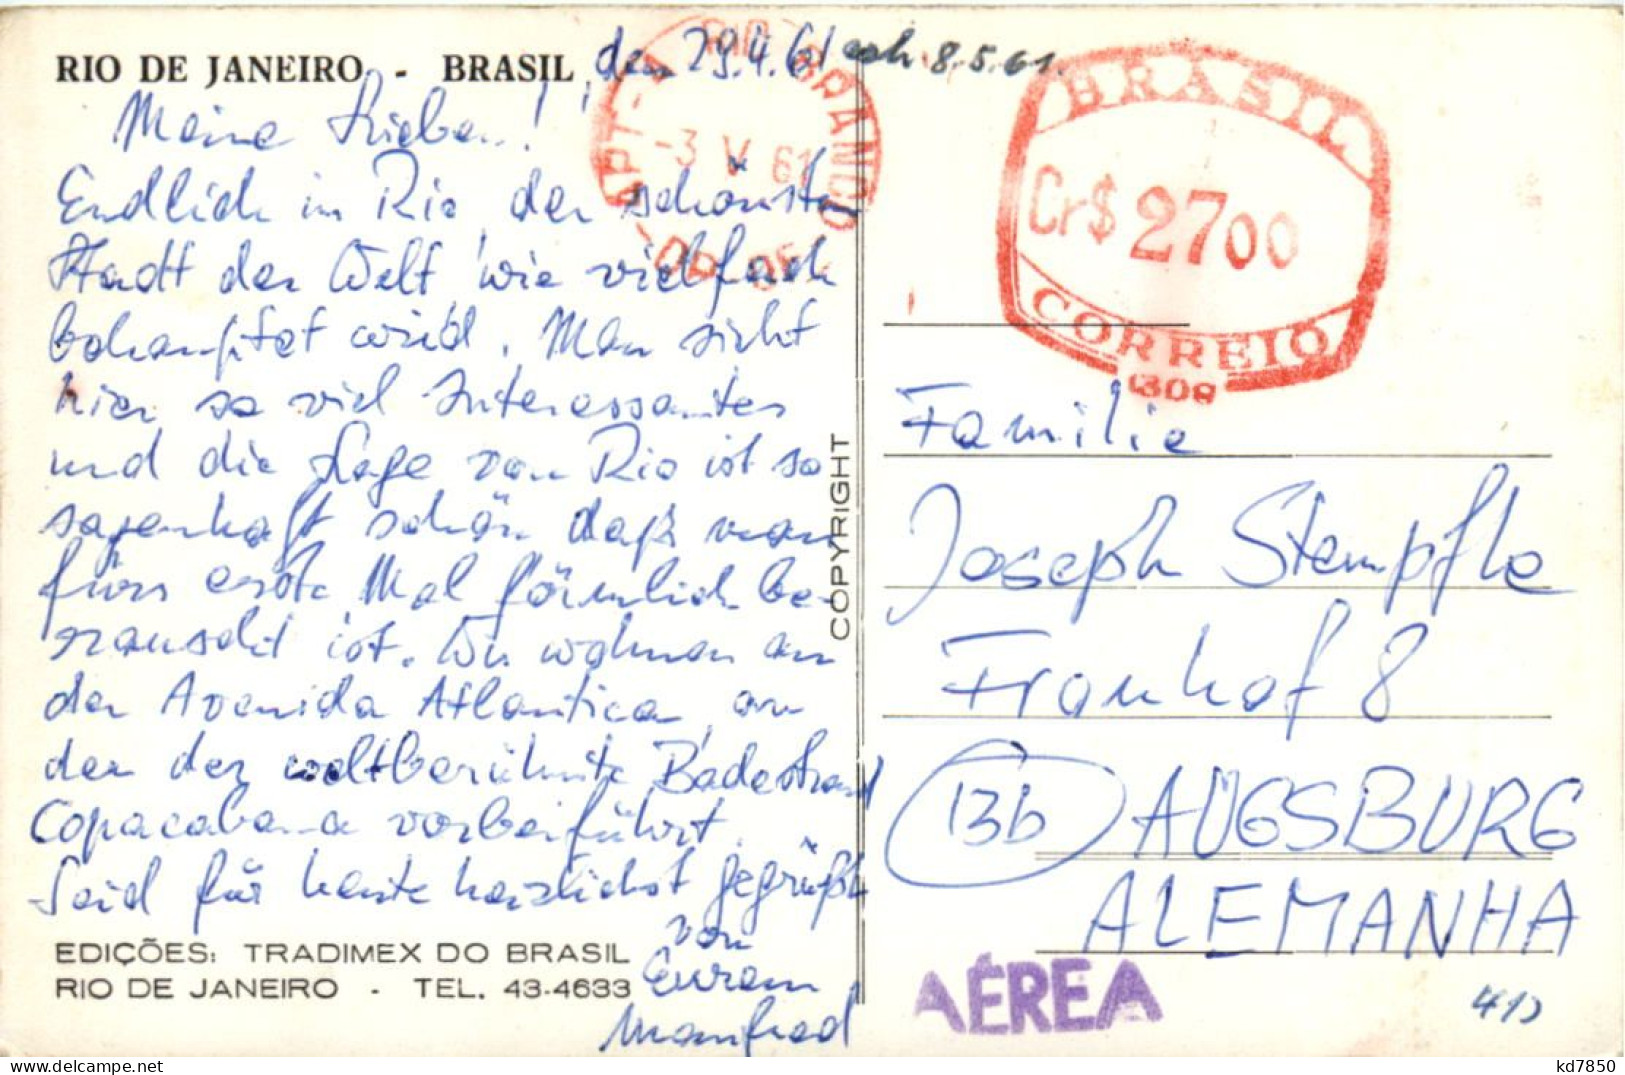 RIO DE JANEIRO - BRASIL, den 29.4.61 erh 8.5.61.
Meine Lieben!
Endlich in Rio, der schönsten
Stadt der Welt, wie vielfach
behauptet wird. Man sieht
hier so viel Interessantes
und die Lage von Rio ist so
sagenhaft schön, daß man
fürs erste Mal förmlich be-
rauscht ist. Wir wohnen an
der Avenida Atlantica, an
der der weltberühmte Badestrand
Copacabana vorbeiführt.
Seid für heute herzlichst gegrüßt
von
Eurem
Manfred
EDIÇÕES: TRADIMEX DO BRASIL
RIO DE JANEIRO - TEL. 43-4633
COPYRIGHT
RIO BRANCO
-3 V 61
BRASIL
Cr$ 2700
CORREIO
1308
Familie
Joseph Stempfle
Frauhof 8
13b AUGSBURG
ALEMANHA
AÉREA
kd7850